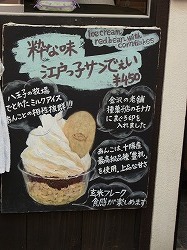 Ice cream,
red bean
compotes
粋な味
江戸っ子サンでぇい
¥450
八王子の牧場
でとれたミルクアイス
あんことの相性抜群!!!
金沢の老舗
種菓店のモナカ
にまぐろをPを
入れました
あんこは、十勝産
最高級品種"雅"
を使用、上品な甘さ
玄米フレーク
食感が楽しめます